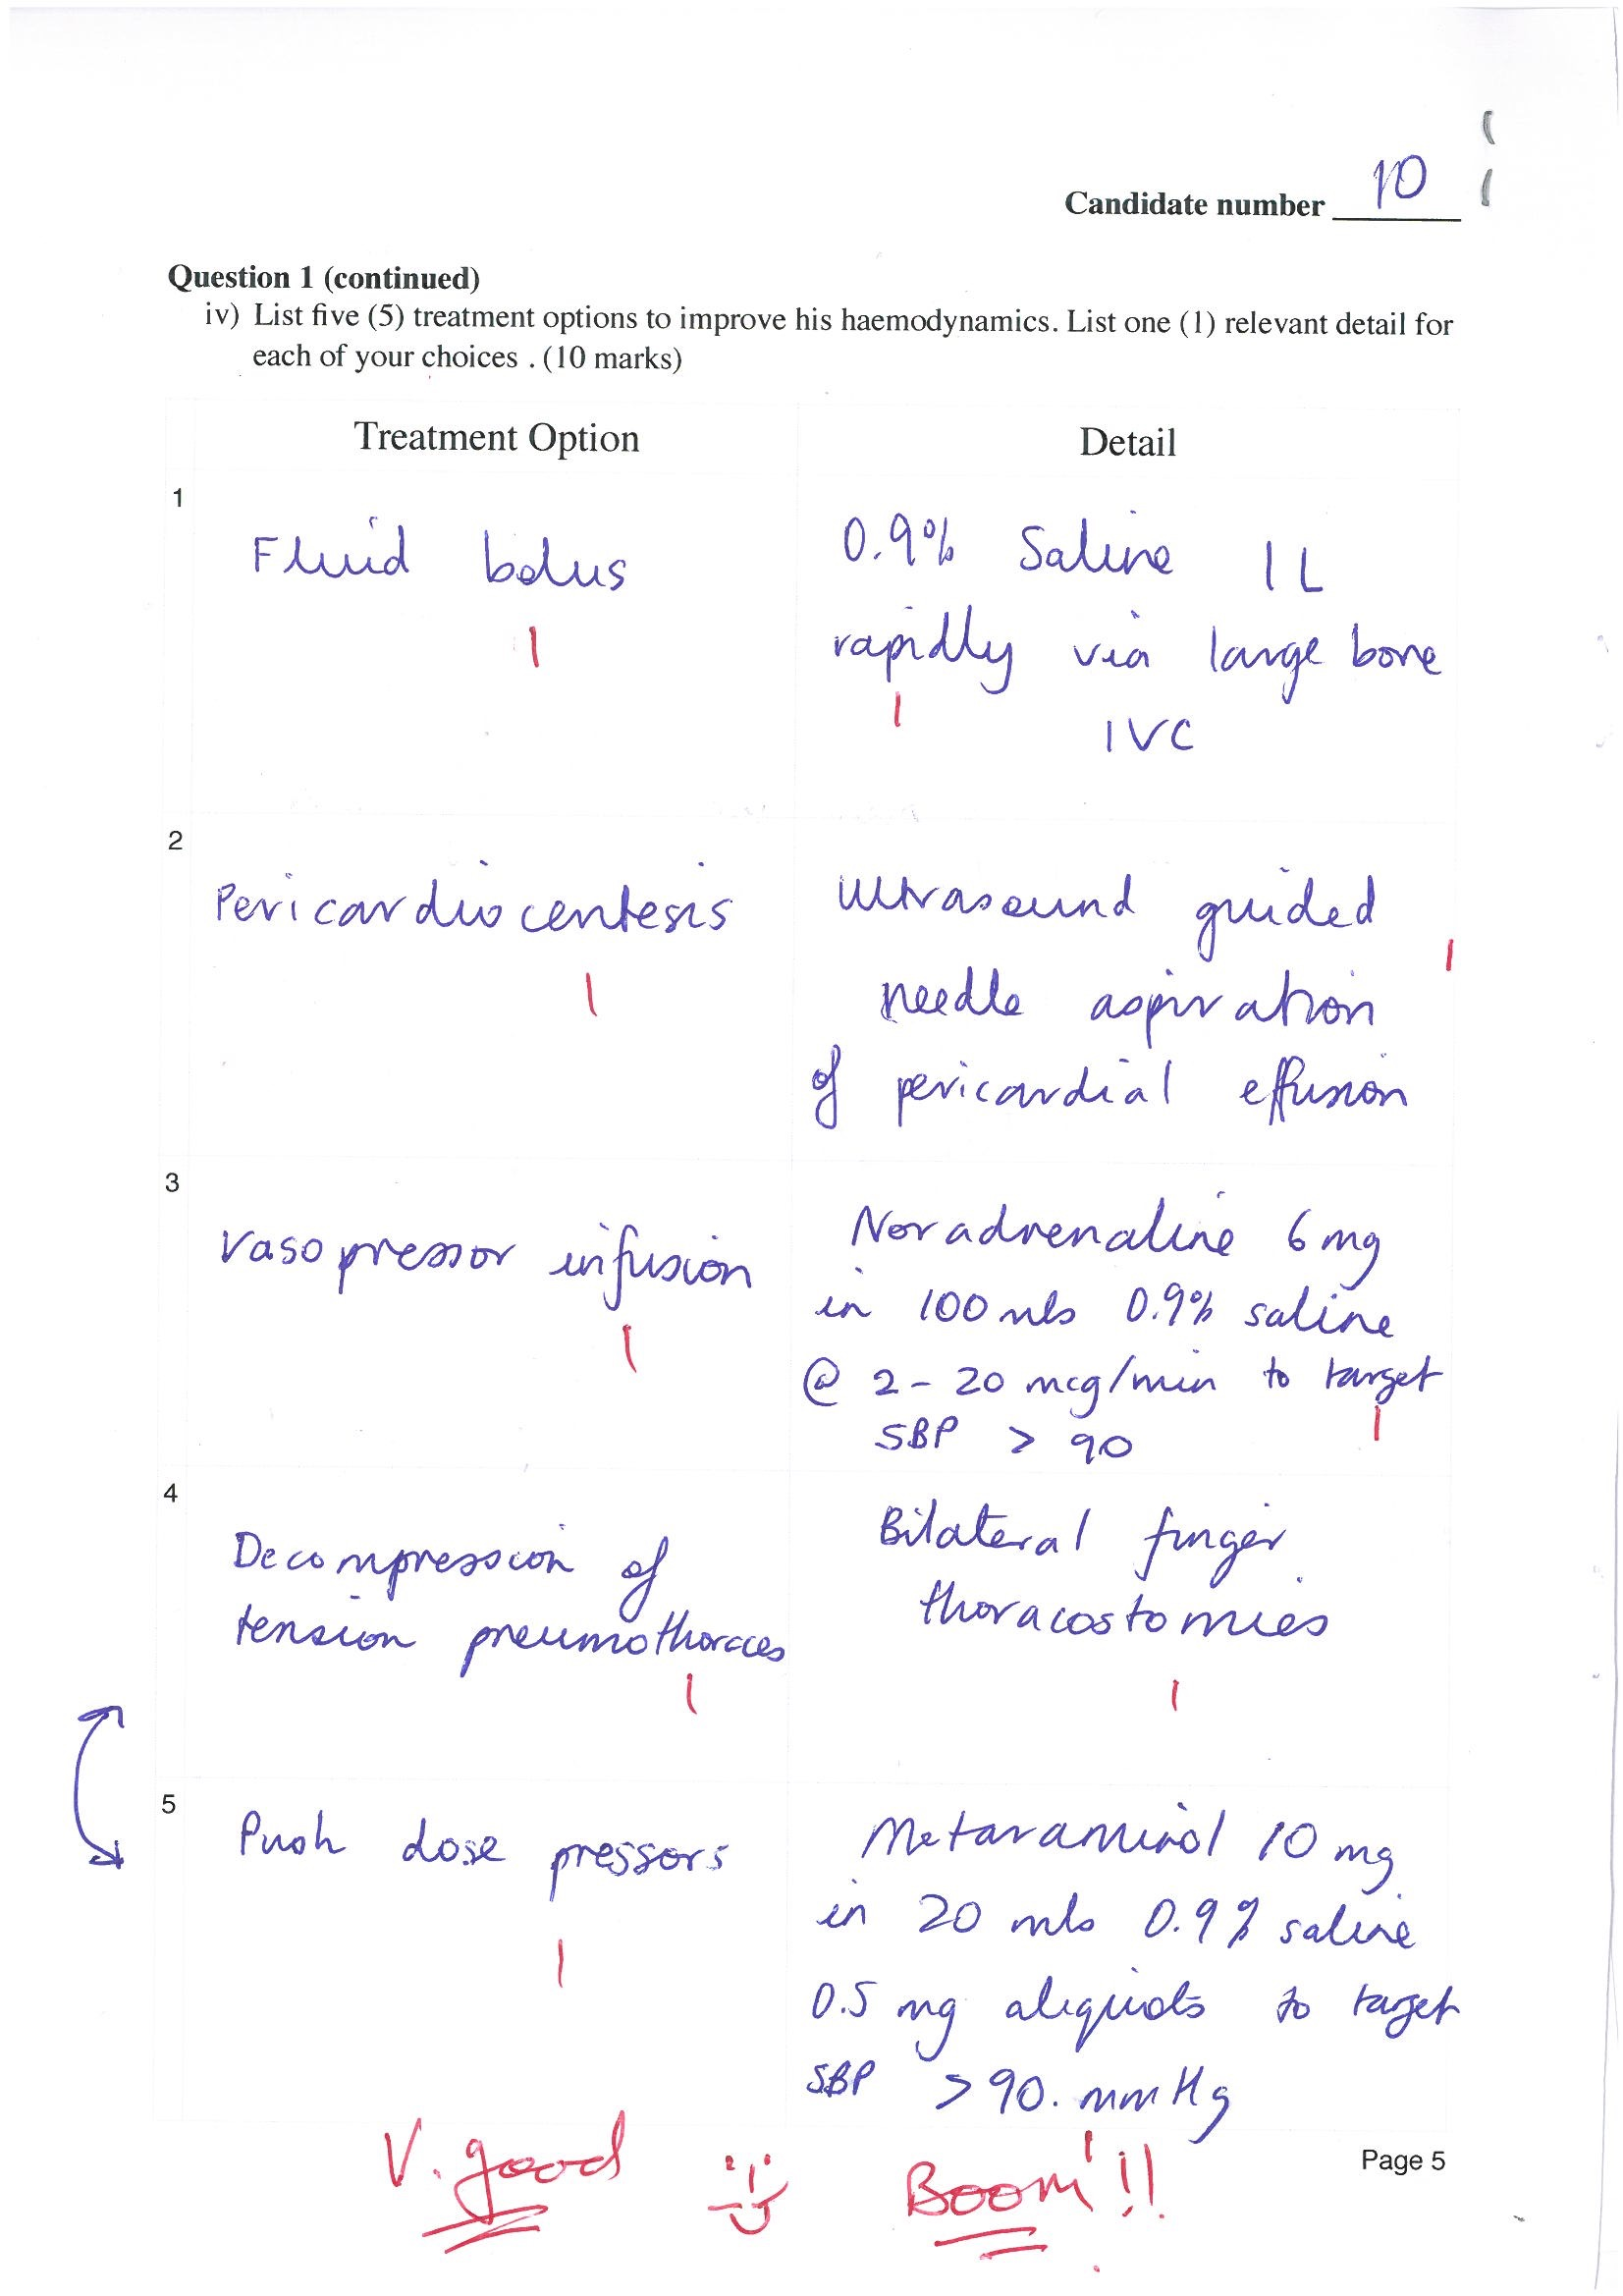 Candidate number 10
Question 1 (continued)
iv) List five (5) treatment options to improve his haemodynamics. List one (1) relevant detail for
each of your choices . (10 marks)
Treatment Option
Detail
1
Fluid bolus
1
0.9% Saline 1L
rapidly via large bore
1
IVC
2
Pericardiocentesis
1
Ultrasound guided
1
needle aspiration
of pericardial effusion
3
Vasopressor infusion
1
Noradrenaline 6mg
in 100 mls 0.9% saline
@ 2-20 mcg/min to target
1
SBP > 90
4
Decompression of
tension pneumothoraces
1
Bilateral finger
thoracostomies
1
5
Push dose pressors
1
Metaraminol 10 mg
in 20 mls 0.9% saline
0.5 mg aliquots to target
SBP >90. mmHg
1
V. good Boom!!
Page 5